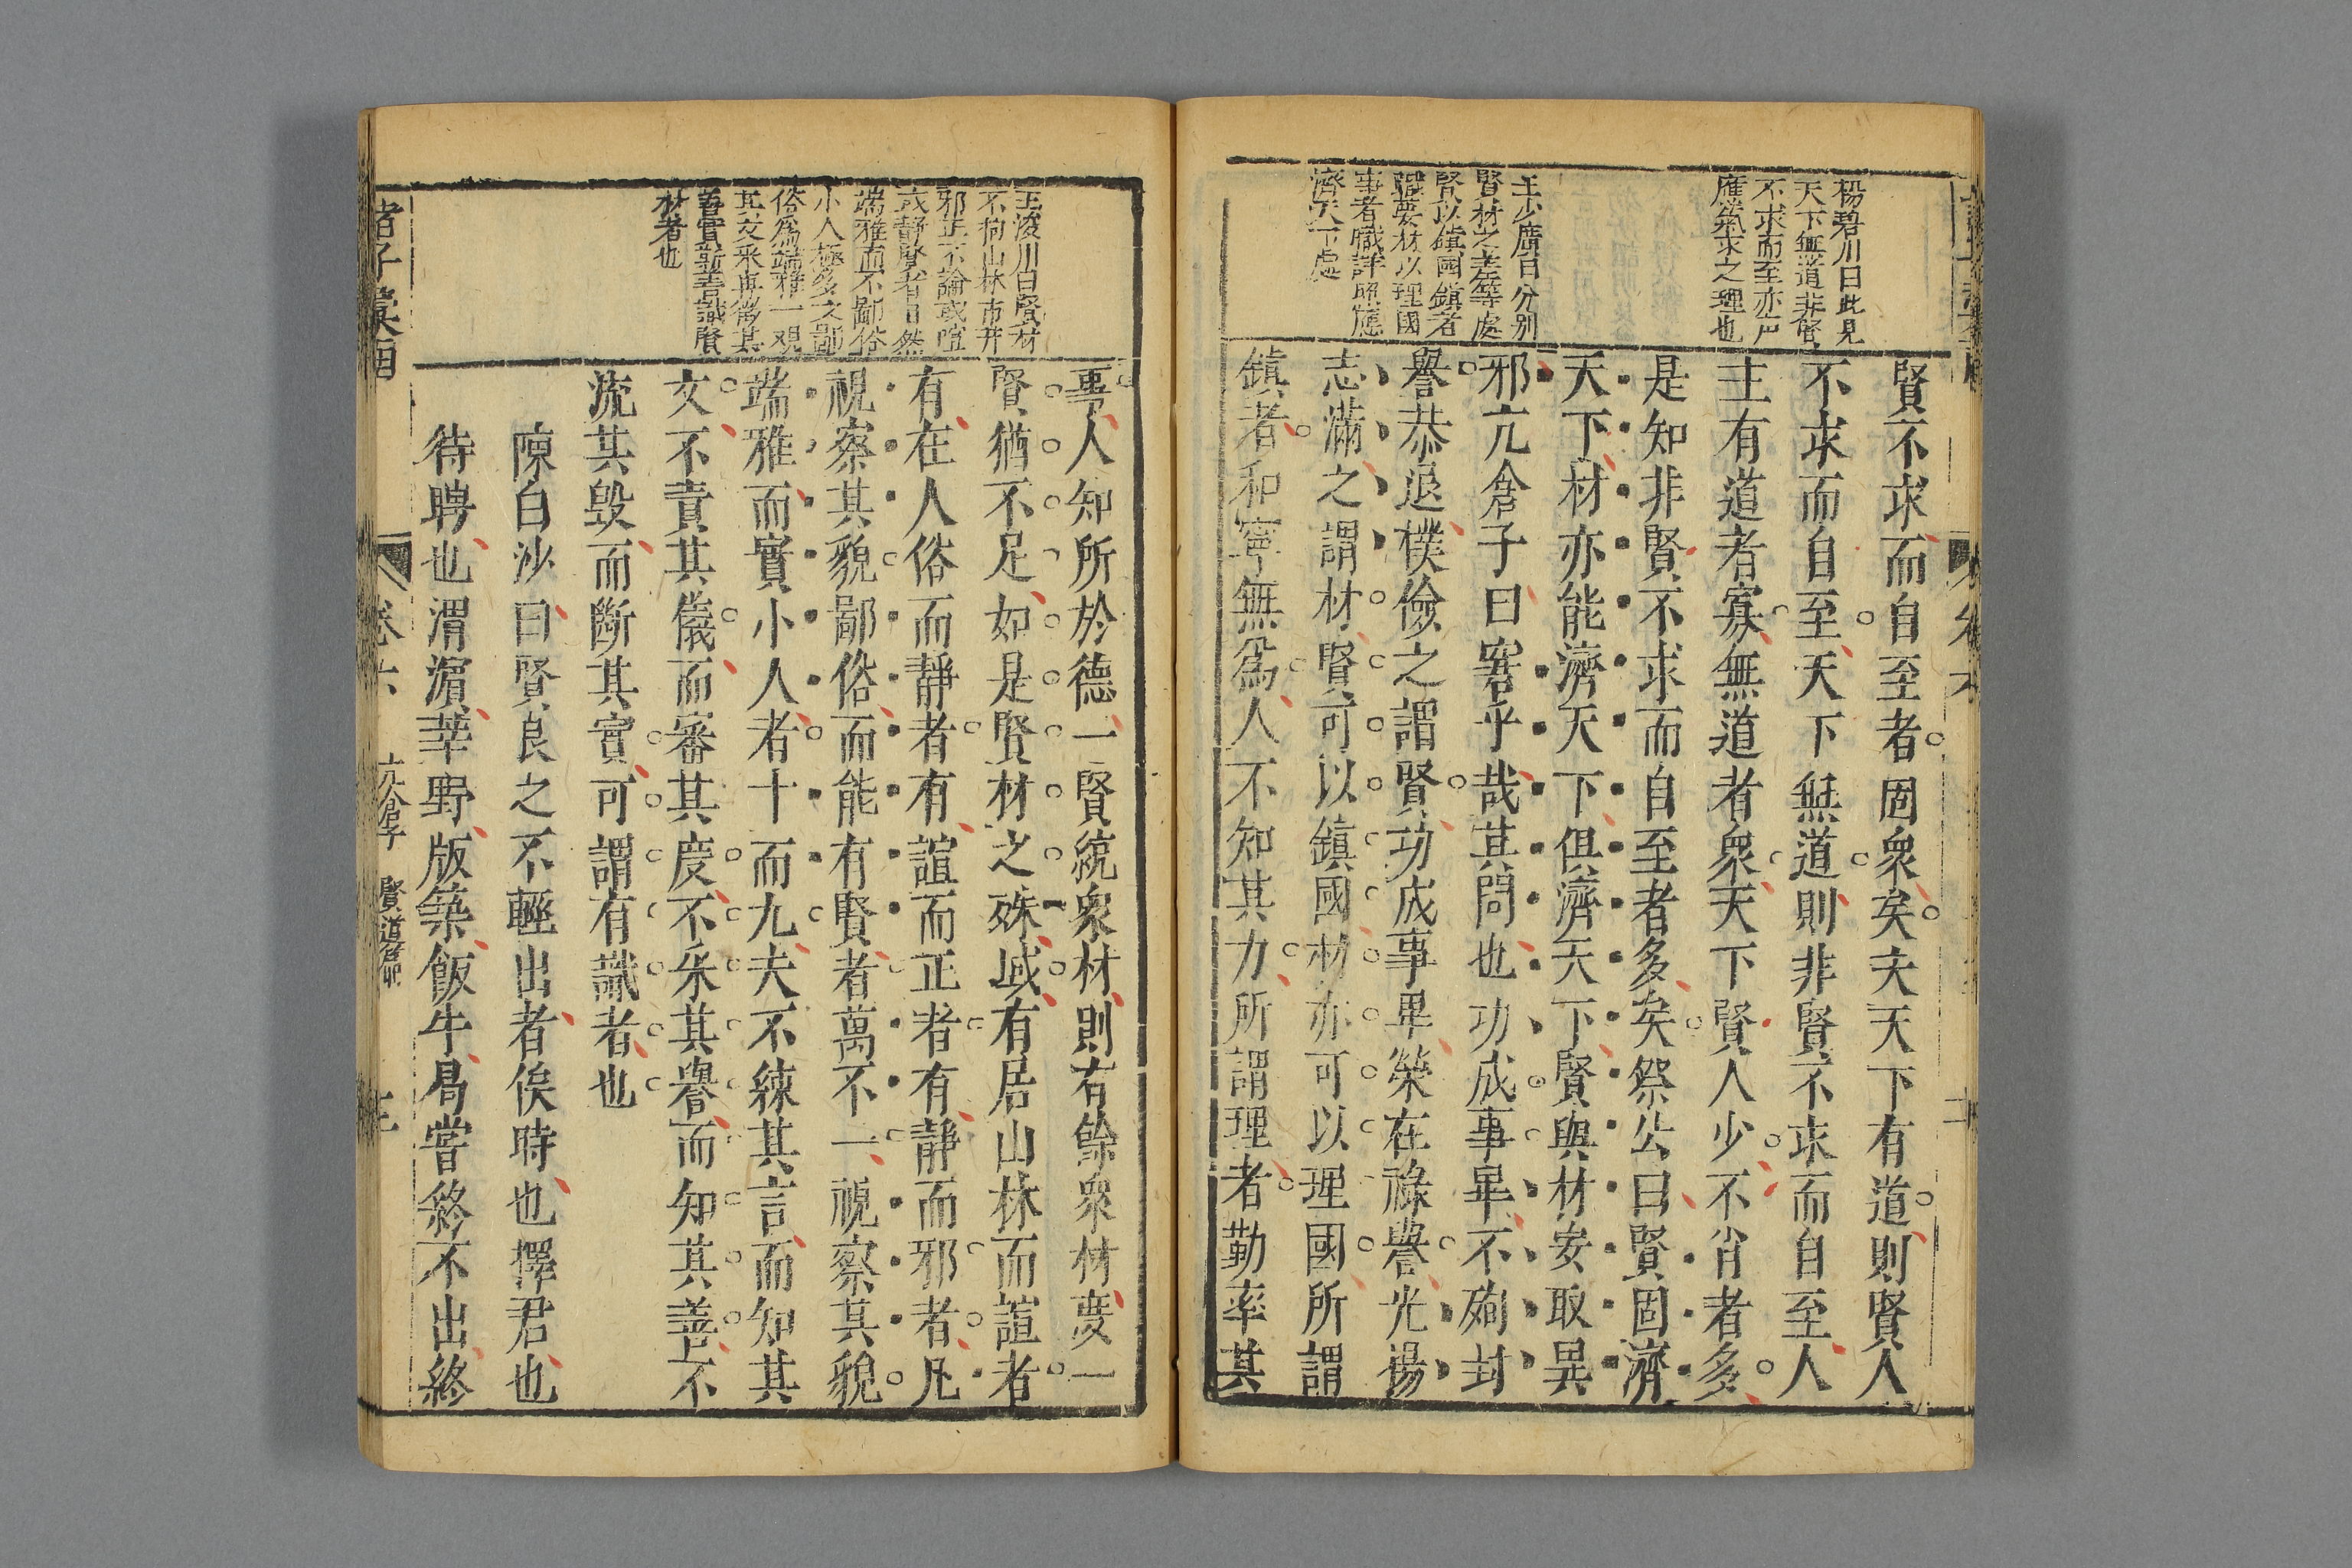 楊碧川曰此見
天下無道非賢
不求而至亦戶
應氣求之理也
王少廣曰分别
賢材之差等處
賢以鎮國鎮者
事者職詳照應
濟天下處
賢不求而自至者固衆矣夫天下有道則賢人
不求而自至天下無道則非賢不求而自至人
主有道者寡無道者衆天下賢人少不肖者多
是知非賢不求而自至者多矣祭公曰賢固濟
天下材亦能濟天下俱濟天下賢與材安取異
邪亢倉子曰窘乎哉其問也功成事畢不殉封
譽恭退樸儉之謂賢功成事畢榮在祿譽光揚
志滿之謂材賢可以鎮國材亦可以理國所謂
鎮者和寧無爲人不知其力所謂理者勤率其
王浚川曰賢材
不拘山林市井
邪正不論或喧
或靜賢者自然
端雅而不鄙俗
小人極多之鄙
俗爲端雅一觀
其文采再察其
材者也
事人知所於德一賢統衆材則有餘衆材度一
賢猶不足如是賢材之殊域有居山林而諠者
有在人俗而靜者有諠而正者有靜而邪者凡
視察其貌鄙俗而能有賢者萬不一視察其貌
端雅而實小人者十而九夫不練其言而知其
文不責其儀而審其度不采其譽而知其善不
流其毁而斷其實可謂有識者也
陳白沙曰賢良之不輕出者俟時也擇君也
待聘也渭濵莘野版築飯牛曷嘗終不出終
諸子彙函
卷六
亢倉子
賢道篇